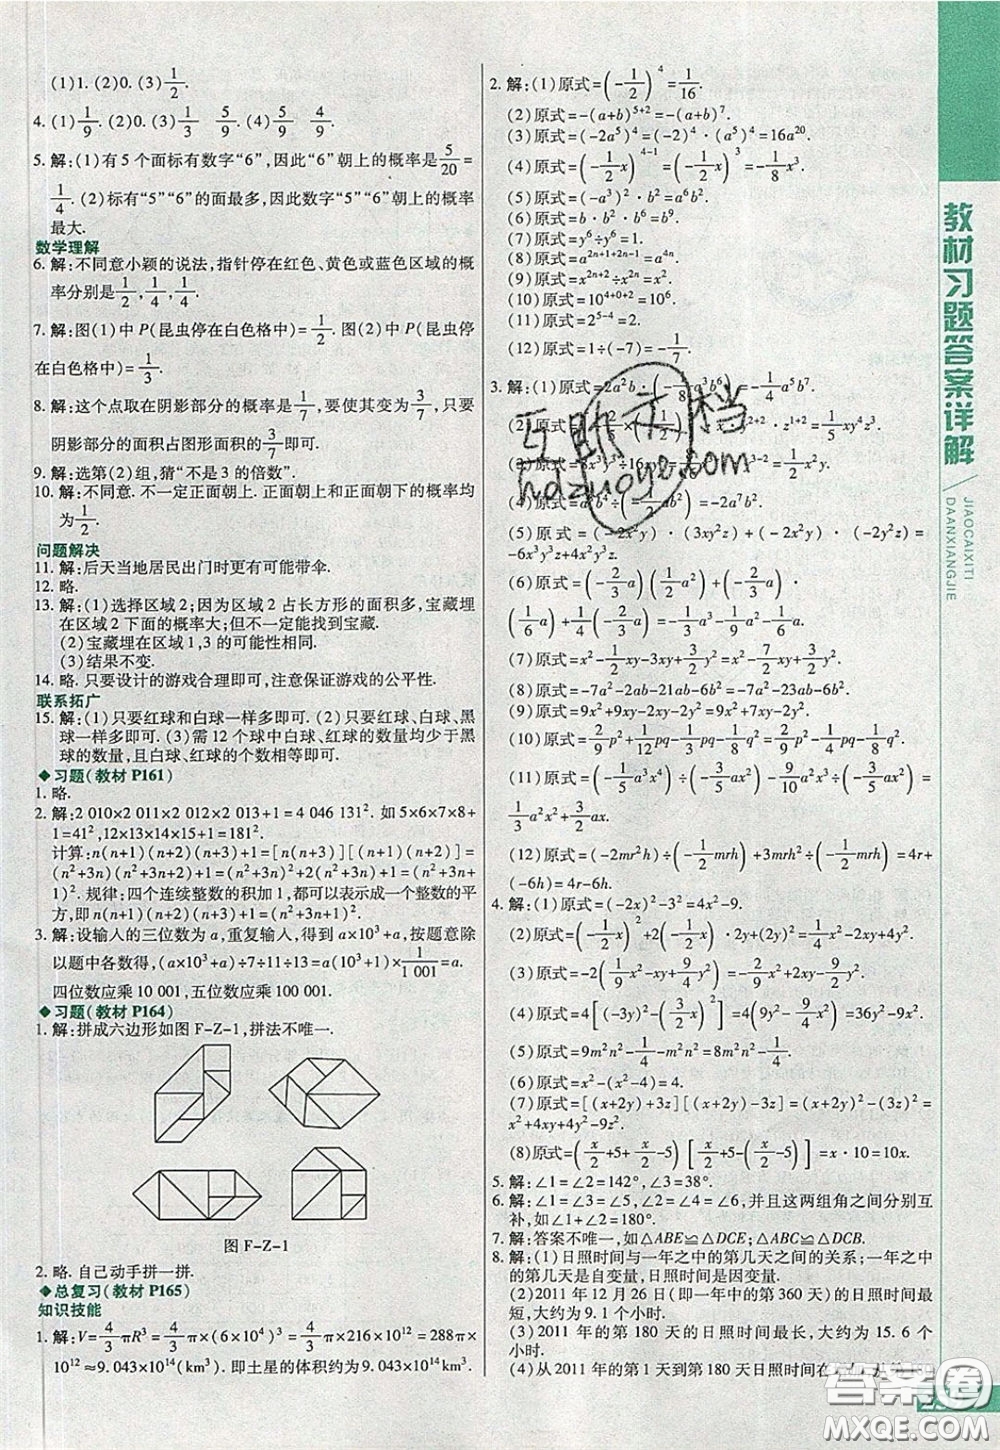 (1)1. (2)0. (3)1/2.
4. (1)1/9. (2)0. (3)1/3 5/9. (4)5/9 4/9.
5. 解:(1)有5个面标有数字“6”,因此“6”朝上的概率是5/20=
1/4. (2)标有“5”“6”的面最多,因此数字“5”“6”朝上的概率
最大.
数学理解
6. 解:不同意小颖的说法,指针停在红色、黄色或蓝色区域的概
率分别是1/2,1/4,1/4.
7. 解:图(1)中P(昆虫停在白色格中)=1/2. 图(2)中P(昆虫停
在白色格中)=1/3.
8. 解:这个点取在阴影部分的概率是1/7,要使其变为3/7,只要
阴影部分的面积占图形面积的3/7即可.
9. 解:选第(2)组,猜“不是3的倍数”.
10. 解:不同意. 不一定正面朝上. 正面朝上和正面朝下的概率均
为1/2.
问题解决
11. 解:后天当地居民出门时更有可能带伞.
12. 略.
13. 解:(1)选择区域2;因为区域2占长方形的面积多,宝藏埋
在区域2下面的概率大;但不一定能找到宝藏.
(2)宝藏埋在区域1,3的可能性相同.
(3)结果不变.
14. 略. 只要设计的游戏合理即可,注意保证游戏的公平性.
联系拓广
15. 解:(1)只要红球和白球一样多即可. (2)只要红球、白球、黑
球一样多即可. (3)需12个球中白球、红球的数量均少于黑
球的数量,且白球、红球的个数相等即可.
◆习题(教材P161)
1. 略.
2. 解:2 010×2 011×2 012×2 013+1=4 046 131². 如5×6×7×8+
1=41²,12×13×14×15+1=181².
计算:n(n+1)(n+2)(n+3)+1=[n(n+3)][(n+1)(n+2)]=
(n²+3n)(n²+3n+2)+1=(n²+3n)²+2(n²+3n)+1=(n²+3n+
1)². 规律:四个连续整数的积加1,都可以表示成一个整数的平
方,即n(n+1)(n+2)(n+3)+1=(n²+3n+1)².
3. 解:设输入的三位数为a,重复输入,得到a×10³+a,按题意除
以题中各数得,(a×10³+a)÷7÷11÷13=a(10³+1)×1/1 001=a.
四位数应乘10 001,五位数应乘100 001.
◆习题(教材P164)
1. 解:拼成六边形如图F-Z-1,拼法不唯一.
图F-Z-1
2. 略. 自己动手拼一拼.
◆总复习(教材P165)
知识技能
1. 解:V=4/3πR³=4/3π×(6×10⁴)³=4/3π×216×10¹²=288π×
10¹²≈9.043×10¹⁴(km³). 即土星的体积约为9.043×10¹⁴km³.
2. 解:(1)原式=(-1/2)⁴=1/16.
(2)原式=-(a+b)⁵⁺²=-(a+b)⁷.
(3)原式=(-2a⁵)⁴=(-2)⁴·(a⁵)⁴=16a²⁰.
(4)原式=(-1/2x)⁴⁻¹=(-1/2x)³=-1/8x³.
(5)原式=(-a³)²·b²=a⁶b².
(6)原式=b·b²·b⁶=b⁹.
(7)原式=y⁶÷y⁶=1.
(8)原式=a²ⁿ⁺¹⁺²ⁿ⁻¹=a⁴ⁿ.
(9)原式=x²ⁿ⁺²÷x²ⁿ=x².
(10)原式=10⁴⁺⁰⁺²=10⁶.
(11)原式=2⁵⁻⁴=2.
(12)原式=1÷(-7)=-1/7.
3. 解:(1)原式=2a²b·(-1/8a³b⁶)=-1/4a⁵b⁷.
(2)·z¹⁺²=1/5xy⁴z³.
(3)原式=8x³y³÷16=1/2x²y³.
(4)=-2a⁷b².
(5)原式=(-2x²y)·(3xy²z)+(-2x²y)·(2y²z³)=
-6x³y³z-4x²y³z³.
(6)原式=(-2/3a)(1/2a²)+(-2/3a)(1/6a)+(-2/3a)·1/4=-1/3a³-1/9a²-1/6a.
(7)原式=x²-xy-3xy+3y²=x²-4xy+3y².
(8)原式=-7a²-2ab-21ab-6b²=-7a²-23ab-6b².
(9)原式=9x²+9xy-2xy-2y²=9x²+7xy-2y².
(10)原式=2/9p²+1/12pq-1/6pq-1/16q²=2/9p²-1/12pq-1/16q².
(11)原式=(-1/5a³x⁴)÷(-3/5ax²)-9/10a²x³÷(-3/5ax²)=
1/3a²x²+3/2ax.
(12)原式=(-2mr²h)÷(-1/2mrh)+3mrh²÷(-1/2mrh)=4r+
(-6h)=4r-6h.
4. 解:(1)原式=(-2x)²-3²=4x²-9.
(2)原式=(-1/2x)²+2(-1/2x)·2y+(2y)²=1/4x²-2xy+4y².
(3)原式=(1/9x²-2/3xy+y²)-(1/9x²+2/3xy+y²)=-4/3xy.
(4)原式=4[(-3y)²-(3/2x)²]=4(9y²-9/4x²)=36y²-9x².
(5)原式=9m²n²-1/4-m²n²=8m²n²-1/4.
(6)原式=x²-(x²-4)=4.
(7)原式=[(x+2y)+3z][(x+2y)-3z]=(x+2y)²-(3z)²=
x²+4xy+4y²-9z².
(8)原式=(x/2+5+x/2-5)[x/2+5-(x/2-5)]=x·10=10x.
5. 解:∠1=∠2=142°,∠3=38°.
6. 解:∠1=∠3=∠5,∠2=∠4=∠6,并且这两组角之间分别互
补,如∠1+∠2=180°.
7. 解:答案不唯一,如△ABE≌△DCE;△ABC≌△DCB.
8. 解:(1)日照时间与一年之中的第几天之间的关系;一年之中
的第几天是自变量,日照时间是因变量.
(2)2011年12月26日(即一年中的第360天)的日照时间最
短,大约为9.1个小时.
(3)2011年的第180天的日照时间最长,大约为15.6个
小时.
(4)从2011年的第1天到第180天日照时间在
教材习题答案详解
JIAOCAIXITI
DAANXIANGJIE
互助文档
hdzuoye.com
答案圈
MXQE.COM